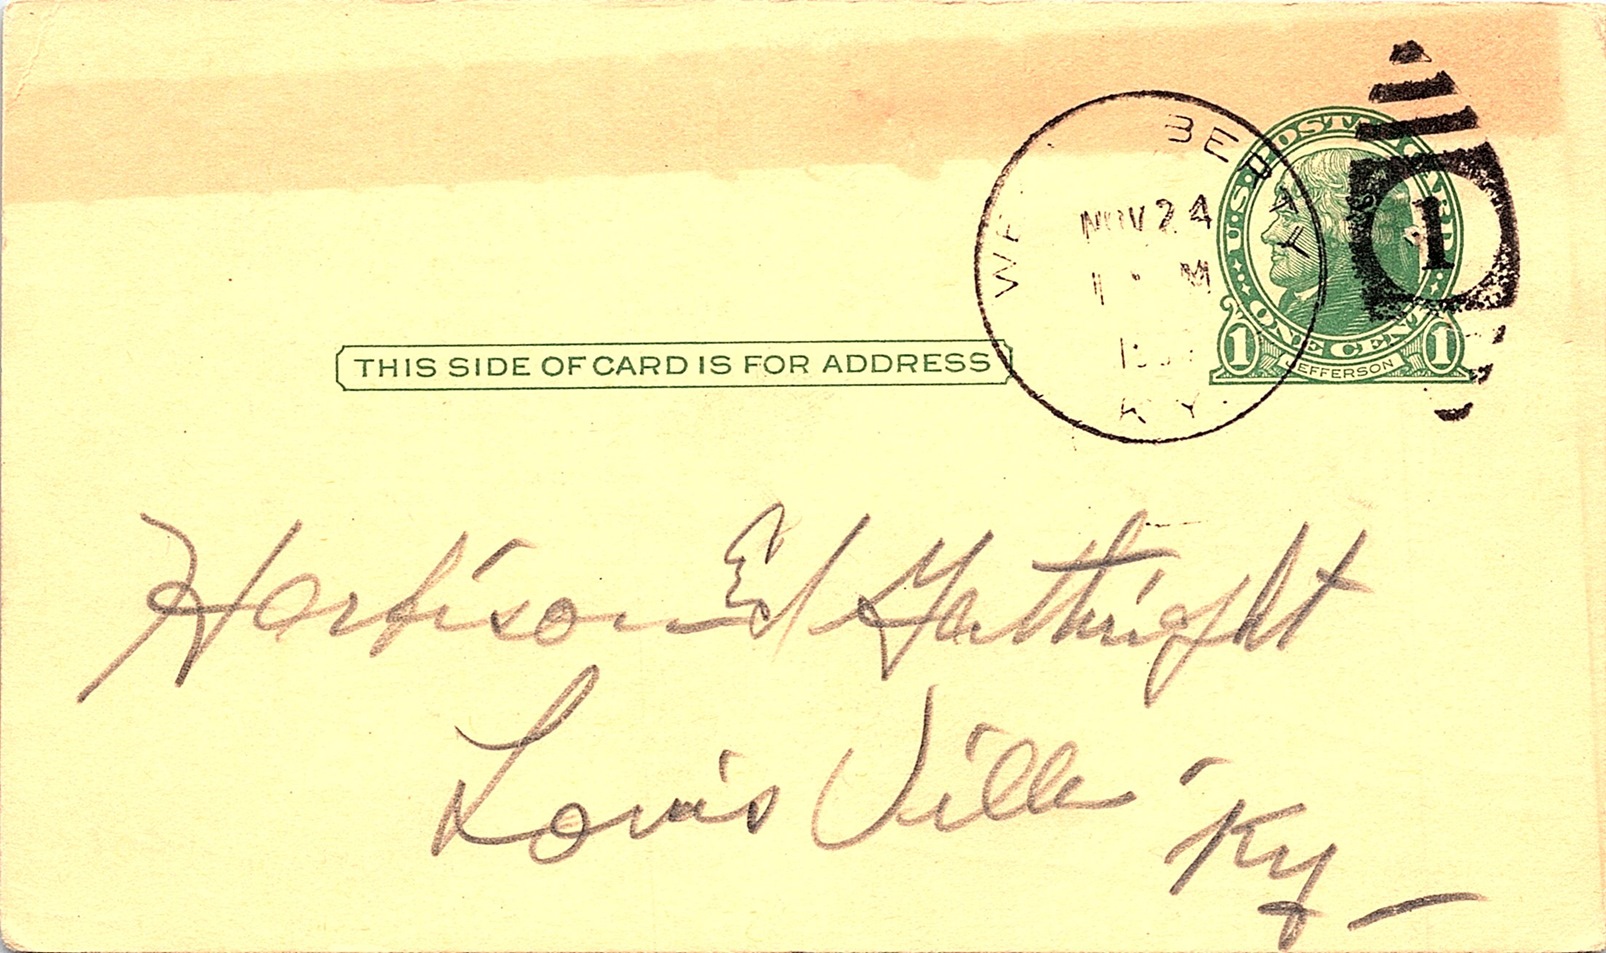 U.S. POSTAL CARD
NOV 24
M
KY.
1
ONE CENT
1 JEFFERSON 1
THIS SIDE OF CARD IS FOR ADDRESS
Harrison Ed Gathright
Louis Ville
Ky